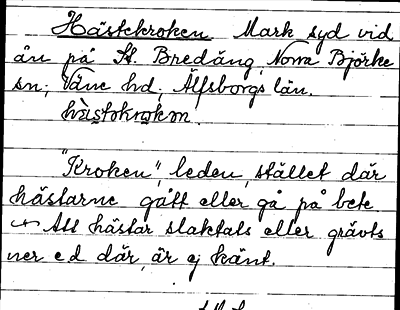 Hästekroken Mark syd vid
ån på St. Bredäng, Norra Björke
sn; Väne hd, Älfsborgs län.
hästokrokən.
"Kroken", leden, stället där
hästarne gått eller gå på bete
Att hästar slaktats eller grävts
ner e.d där, är ej känt.